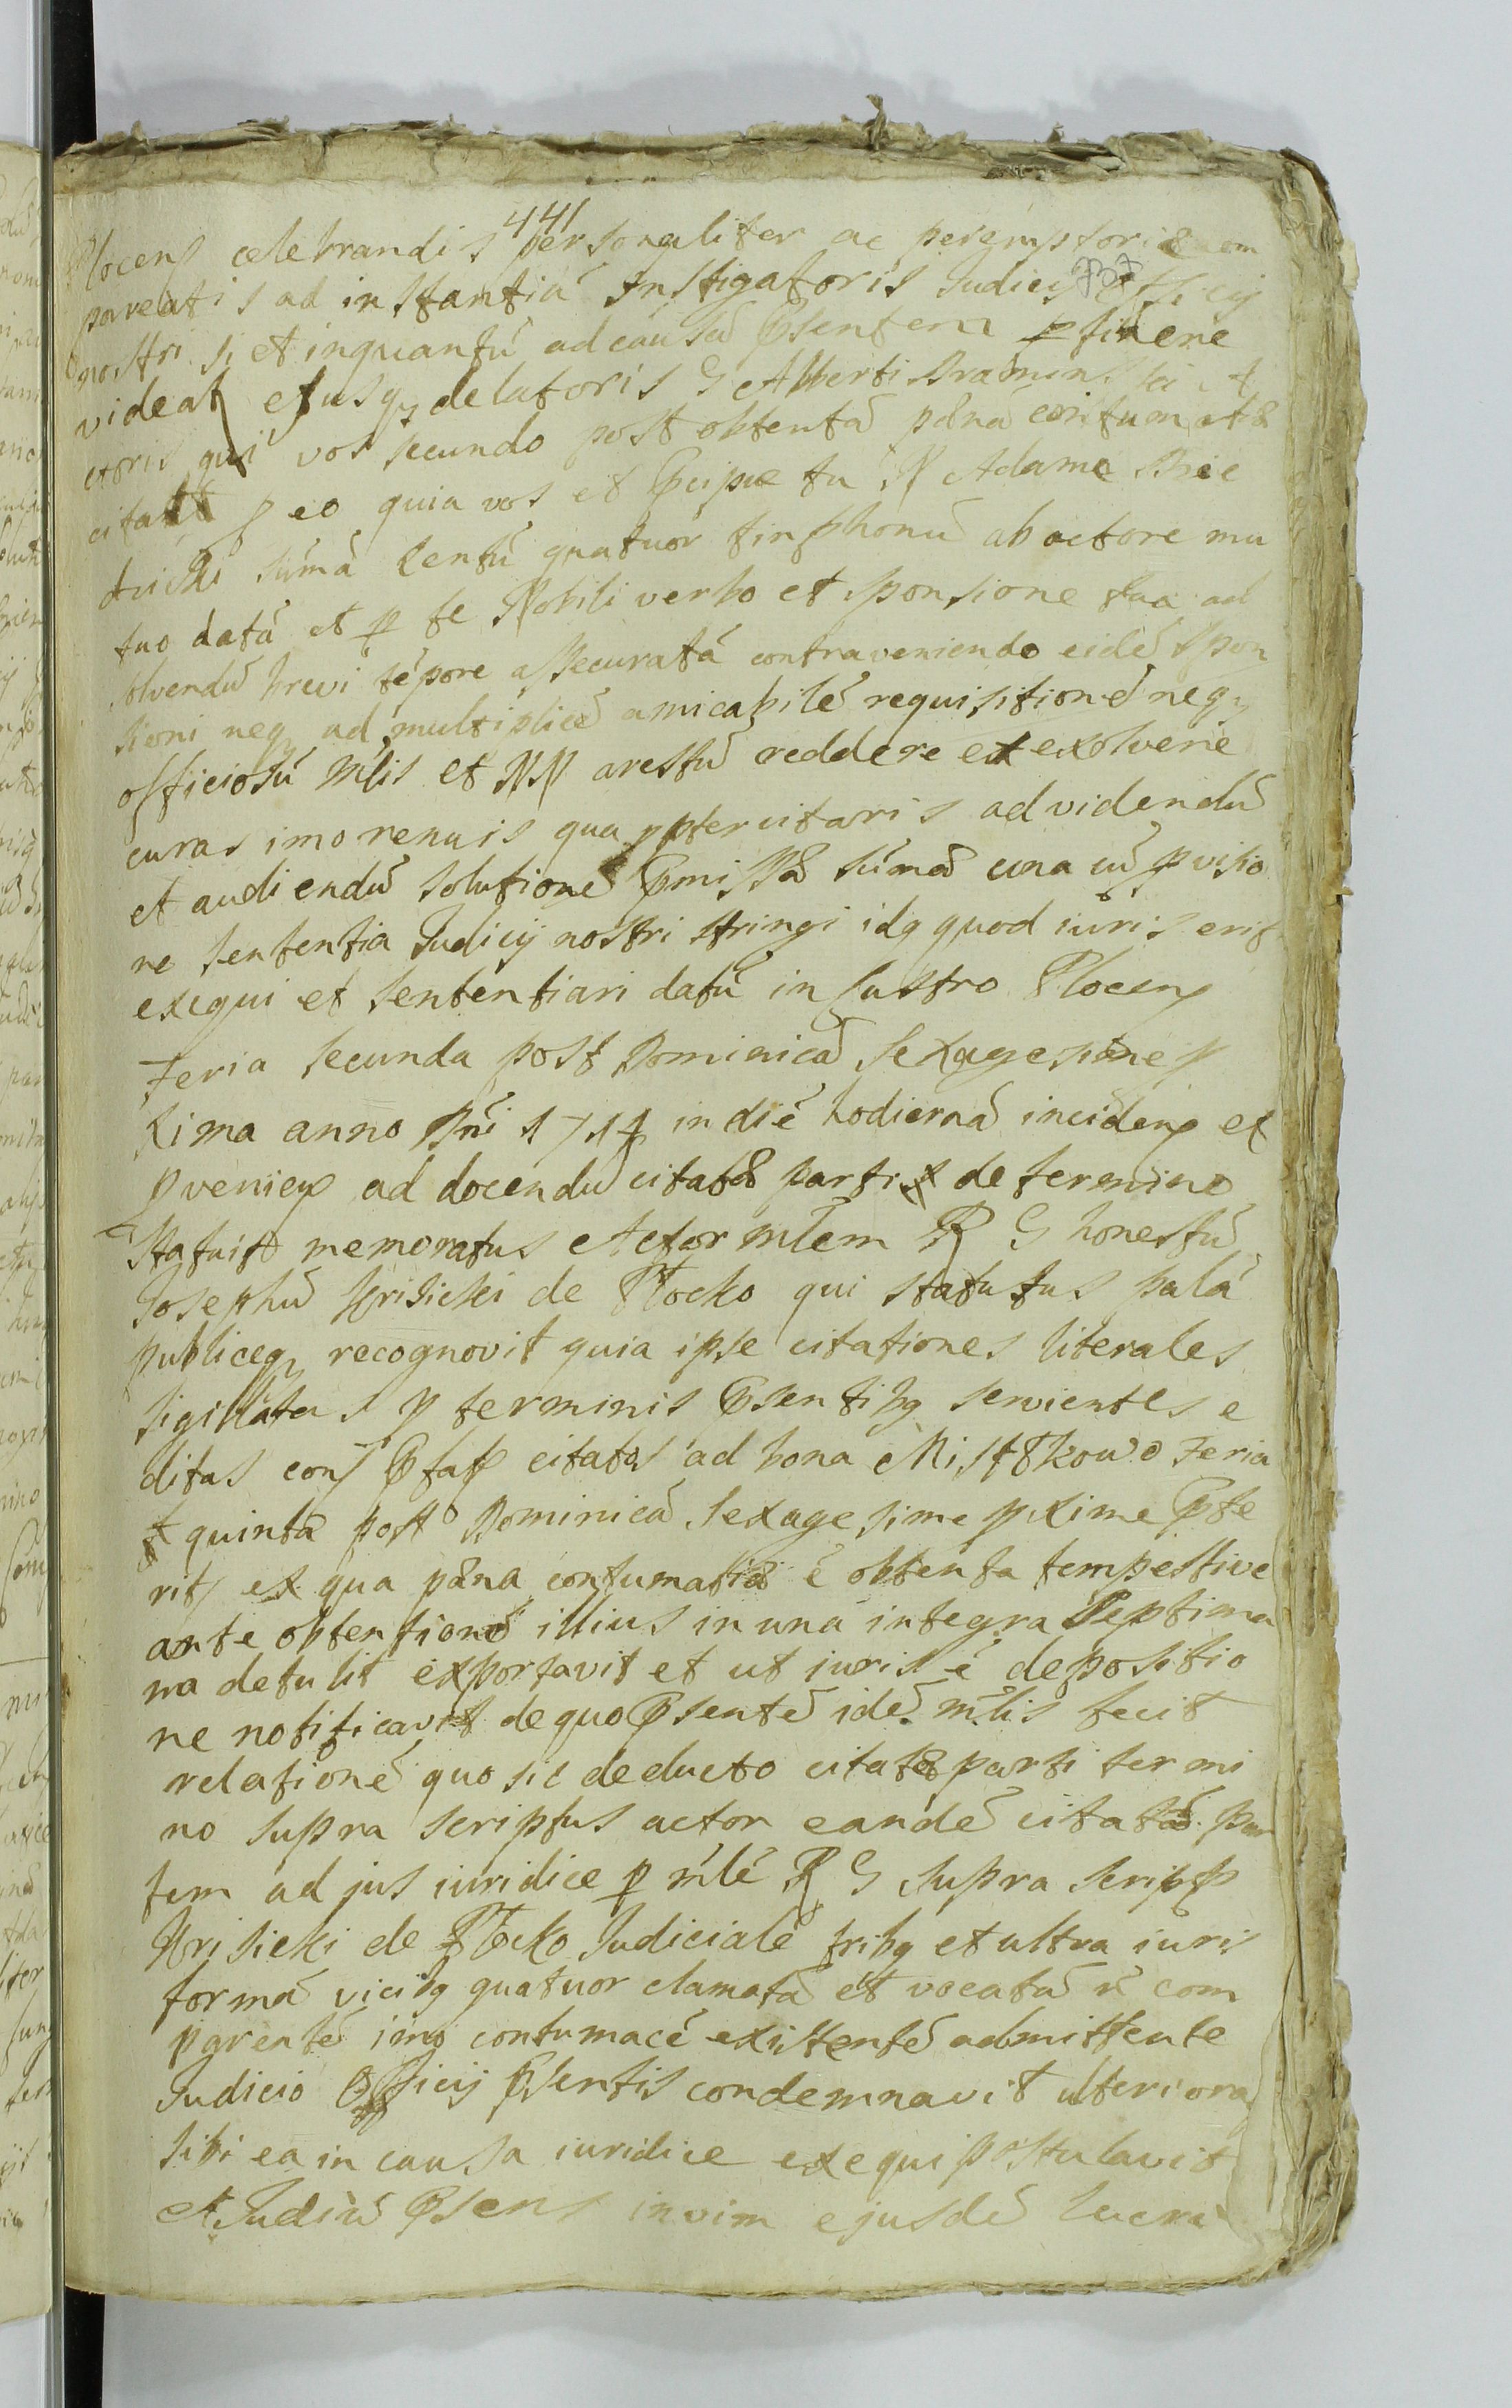 441
Plocens celebrandis personaliter ac peremptorie com
pareatis ad instantiã Instigatoris Judicij officij
nostri si et inquantũ ad causã Psentem ptinere
videat ejusq delatoris G Alberti
ctoris qui vos secundo post obtentã pænã contumatiæ
citat p eo quia vos et Pcipue tu N Adame
sũmã Centũ quatuor tinphonũ ab actore mu
tuo datã et p te Nobili verbo et sponsione tua ad
solvendũ brevi tẽpore assecuratã contraveniendo eidẽ spon
sioni neq ad multiplicẽ amicabilẽ requisitionẽ neq
officiosũ Mlis et NN arestũ reddere et exolvere
curas imo renuis qua ppter citaris ad videndũ
et audiendũ solutionẽ Pmissæ sũmæ una cũ pvisio
ne sententia Judicij nostri stringi idq quod iuris erit
exequi et sententiari datũ in Castro Plocens
Feria secunda post Dominicã Sexagesime p
xima anno Dni 1714 in diẽ hodiernã incidens et
pveniens ad docendũ citatæ parti de termino
statuit memoratus Actor Mlem R G honestũ
Josephũ Krisicki de Płocko qui statutus palã
publiceq recognovit quia ipse citationes literales
sigillatas p terminis Psentibq servientes e
ditas con Ptat citatos ad bona Mistkowo Feria
quinta post Dominicã Sexagesime pxime Pte
rit ex qua pæna contumatiæ ẽ obtenta tempestive
ante obtentionẽ illius in unã integra Septima
na detulit exportavit et ut iuris ẽ depositio
ne notificavit de quo Psentẽ idẽ mlis fecit
relationẽ quo sic deducto citatæ parti termi
no supra scriptus actor eandẽ citatã par
tem ad jus iuridice p mlẽ R G supra script
Krisicki de Płocko Judicialẽ tribq et ultra iuris
formã vicibq quatuor clamatã et vocatã ñ com
parentẽ imo contumacẽ existentẽ admittente
Judicio Officij Psentis condemnavit ulteriora
sibi ea in causa iuridice exequi postulavit
Et Judiciũ Psens in vim ejusdẽ lucra